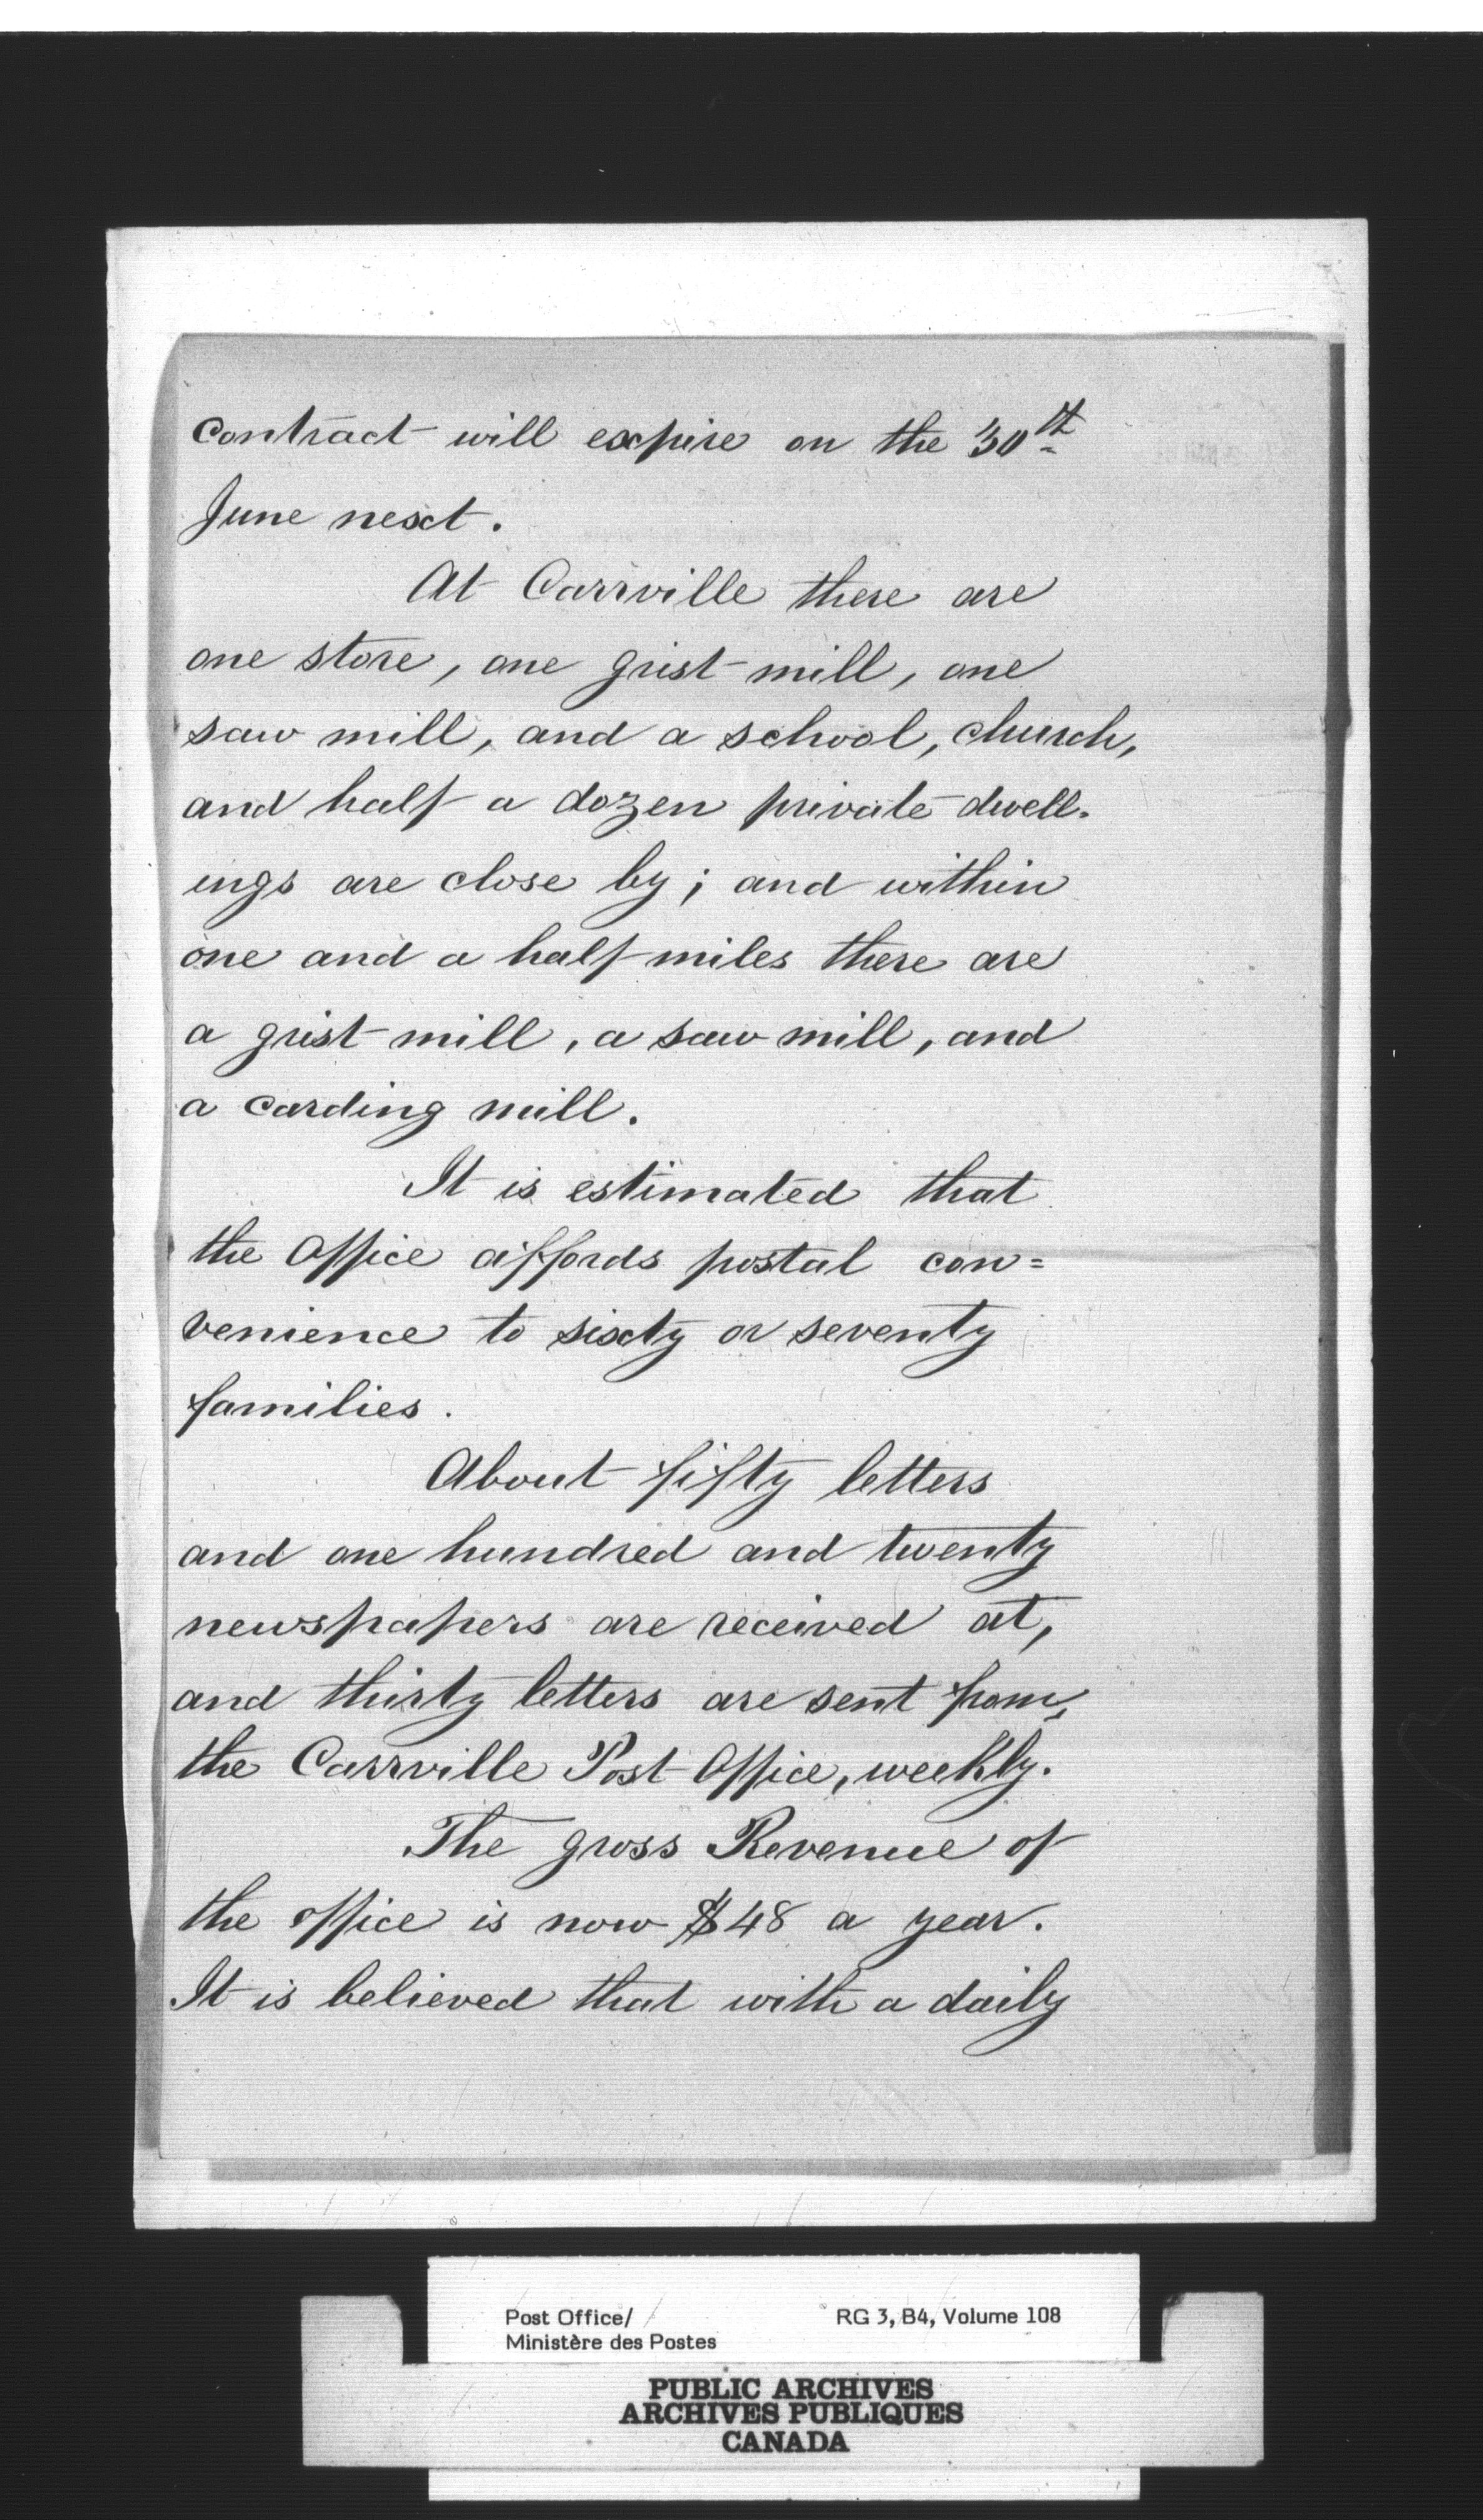 contract will expire on the 30th
June next.
At Carrville there are
one store, one grist mill, one
saw mill, and a school, church,
and half a dozen private dwell-
ings are close by; and within
one and a half miles there are
a grist mill, a saw mill, and
a carding mill.
It is estimated that
the Office affords postal con=
venience to sixty or seventy
families.
About fifty letters
and one hundred and twenty
newspapers are received at,
and thirty letters are sent from,
the Carrville Post Office, weekly.
The gross Revenue of
the office is now $48 a year.
It is believed that with a daily
Post Office/ RG 3, B4, Volume 108
Ministère des Postes
PUBLIC ARCHIVES
ARCHIVES PUBLIQUES
CANADA